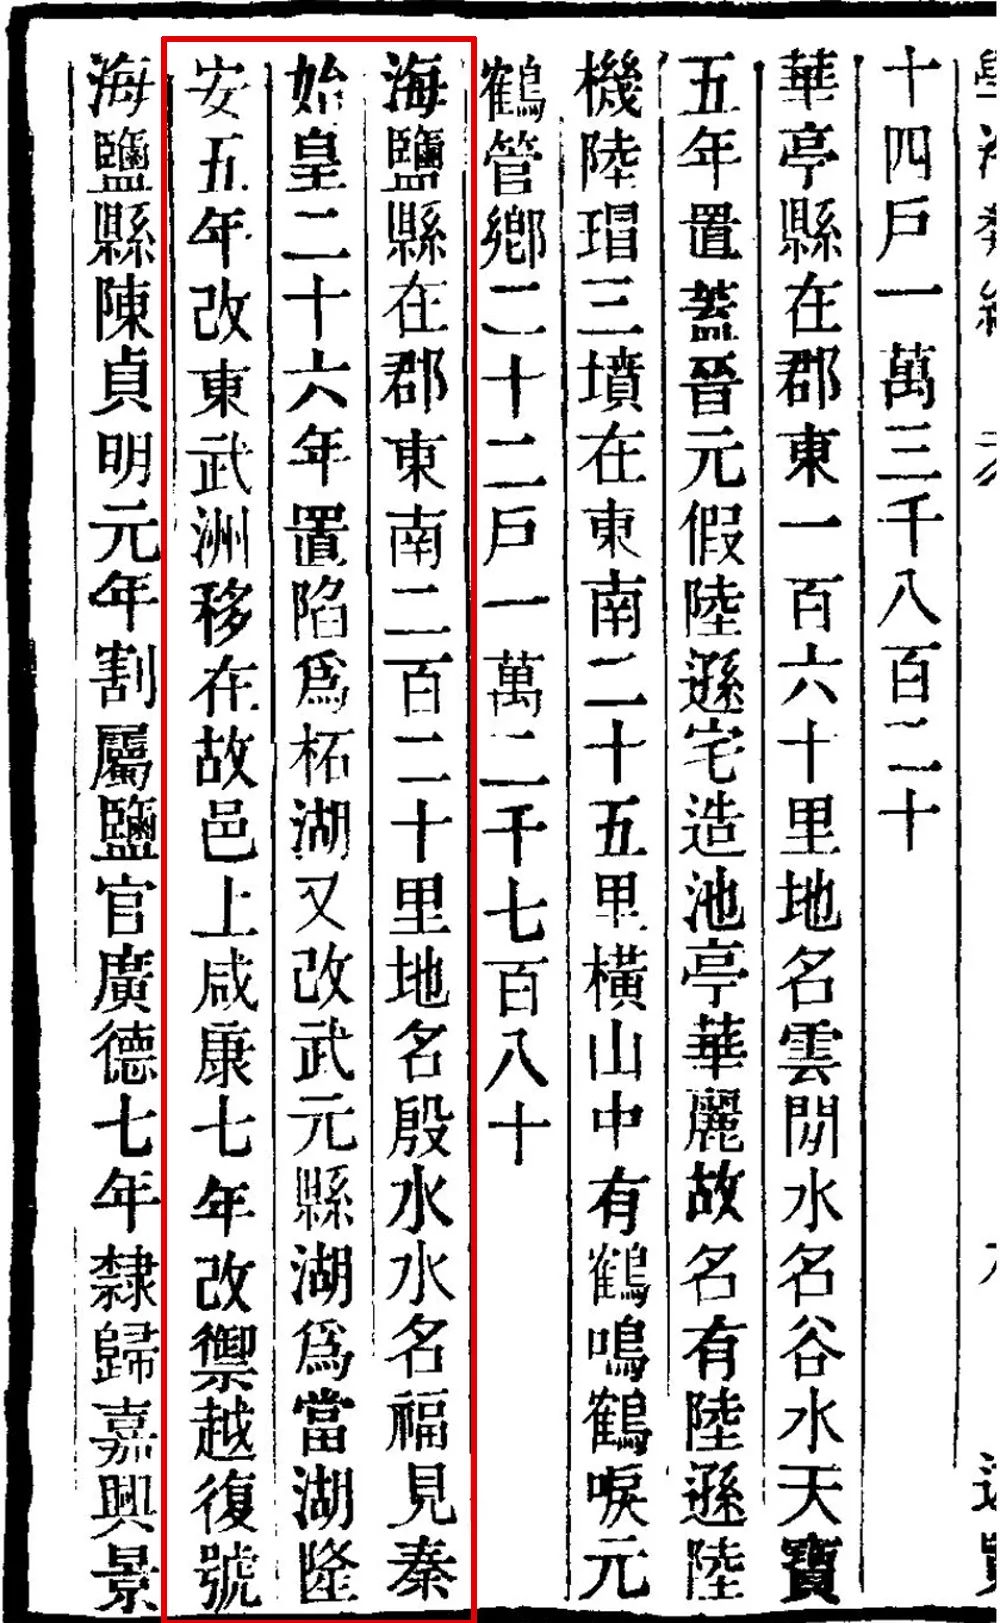 十四戶一萬三千八百二十
華亭縣在郡東一百六十里地名雲間水名谷水天寶
五年置蓋晉元假陸遜宅造池亭華麗故名有陸遜陸
機陸瑁三墳在東南二十五里橫山中有鶴鳴鶴唳元
鶴管鄉二十二戶一萬二千七百八十
海鹽縣在郡東南二百二十里地名殷水水名福見秦
始皇二十六年置陷爲柘湖又改武元縣湖爲當湖隆
安五年改東武洲移在故邑上咸康七年改禦越復號
海鹽縣陳貞明元年割屬鹽官廣德七年隸歸嘉興景